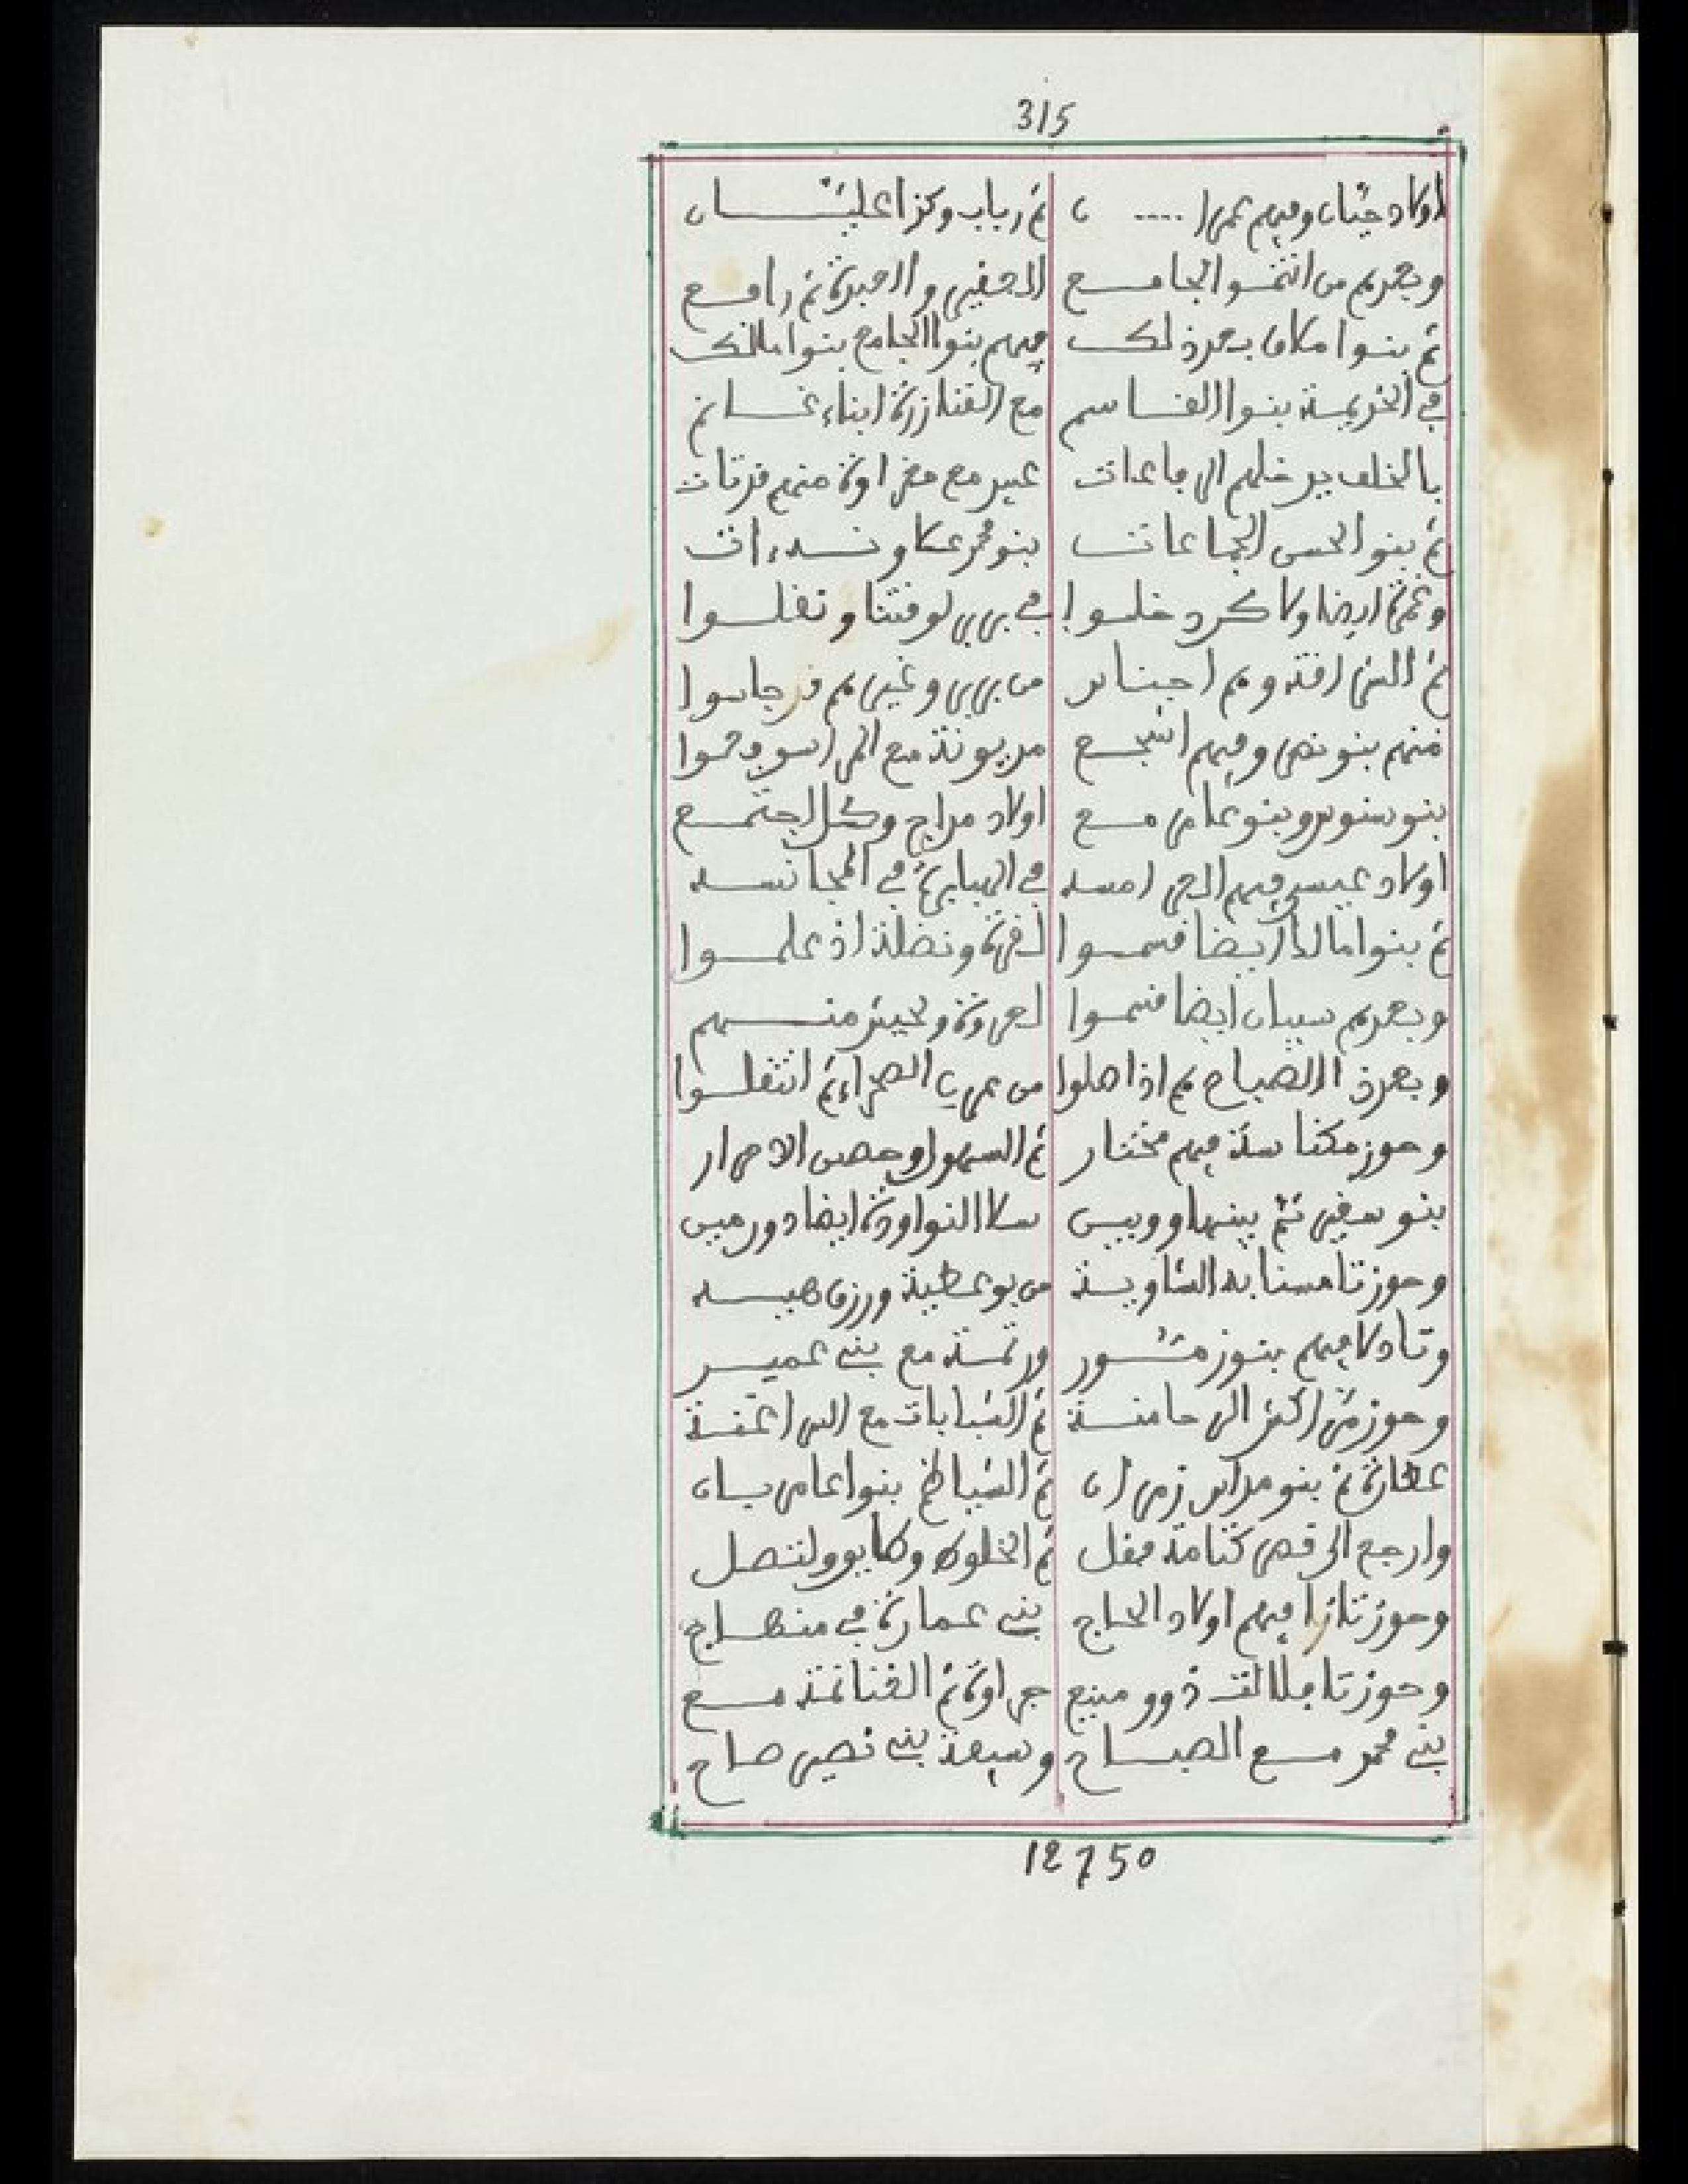 315
اولاد جشان وفيهم عمرا .... ن ثم رباب وكذا عليشان
وبعدهم من انتموا لجامع ثم رافع
ثم بنوا مكان بعد ذلك فيهم بنوا الجامع بنوا مالك
في الخديمة بنوا القاسم مع القنازرة ابناء غانم
بالخلف يدخلهم الرباعات عبير مع مغراوة منهم فرقات
ثم بنو الحسن الجماعات بنو محمد
ايضا ولا كرد خلوا في بربر لوقتنا ونقلوا
ثم الشراقة وهم اجناس من بربر وغيرهم قد جاسوا
منهم بنو نصر وفيهم اشجع مديونة مع
بنو سنوس وبنو عامر مع اولاد مداح وكل اجتمع
اولاد عيسى فيهم في الهبابرة في المجانسه
ثم بنوا مالك ايضا قسموا لفرقة ونضلة اذ علموا
وبعدهم سبيان ايضا قسموا لعروة منهم
وبعد ذا الصباح هم اذا هلوا من عرب الصحراء ثم انتقلوا
وحوز مكناسة فيهم مختار ثم السهول وحصن الاحرار
بنو سفير ثم بينها وويس سلا النواودة ايضا دورميس
وحوز تامسنا به الشاوية من بو عطية
وتادلا فيهم بنو زمشور ورتمة مع بني عمير
وحوز مراكش الرحامنة ثم الشبابات مع السراغنة
عطارة ثم بنو مداس زمران ثم الشياظم بنوا عامر بان
وارجع الى قصر كتامة فقل ثم الخلوط
وحوز تازا فيهم اولاد الحاج بني عمارة في منهاج
وحوز تافيلالت ذوو منيع جراوة ثم الغنانمة مع
بني محمد مع الصباح وسبعة بني نصير صاح
12750